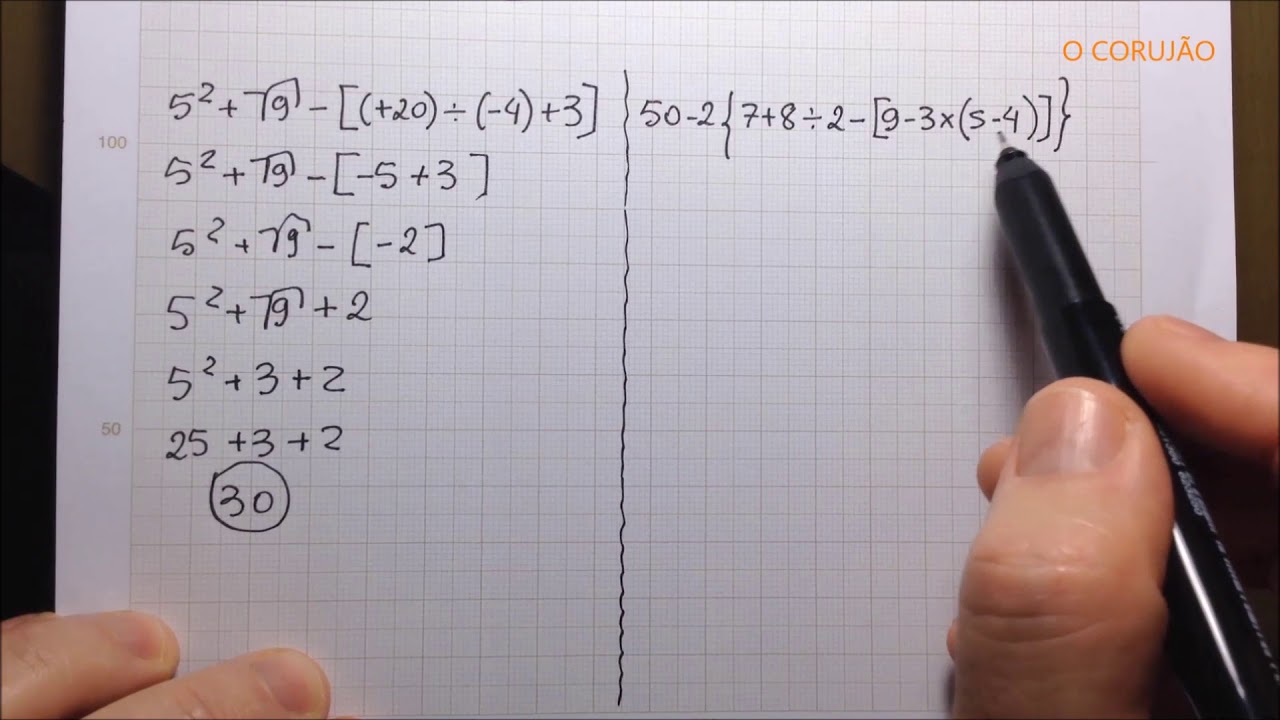 O CORUJÃO
5² + √9 - [(+20) ÷ (-4) + 3]
5² + √9 - [-5 + 3]
5² + √9 - [-2]
5² + √9 + 2
5² + 3 + 2
25 + 3 + 2
30
50-2{7+8÷2-[9-3×(5-4)]}
100
50